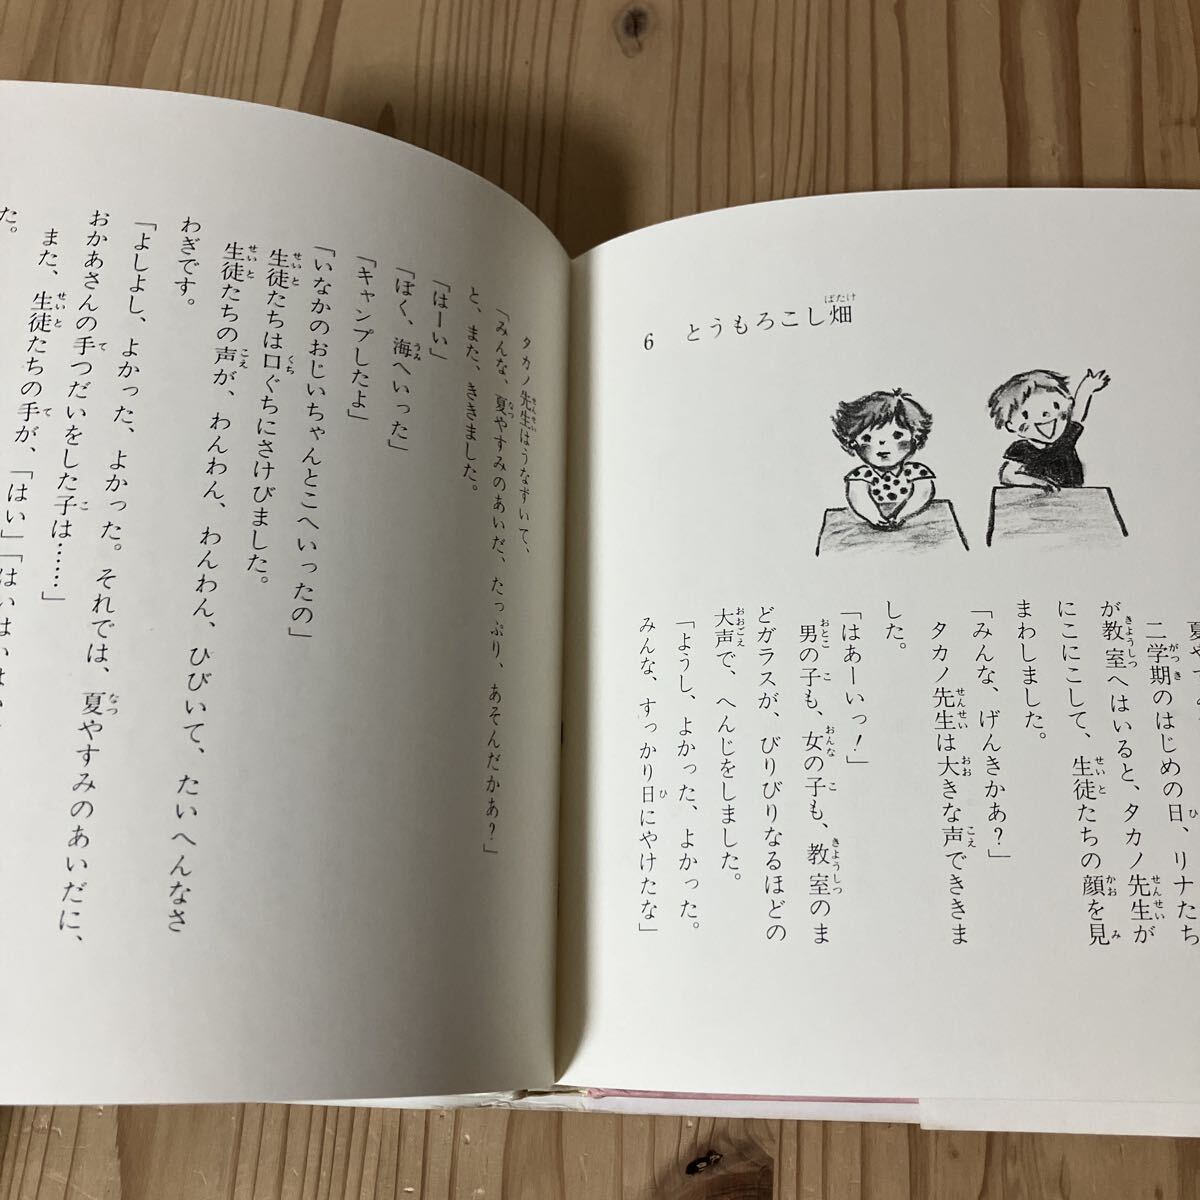 6 とうもろこし畑
二学期のはじめの日、リナたち
が教室へはいると、タカノ先生が
にこにこして、生徒たちの顔を見
まわしました。
「みんな、げんきかあ?」
タカノ先生は大きな声でききま
した。
「はあーいっ!」
男の子も、女の子も、教室のま
どガラスが、びりびりなるほどの
大声で、へんじをしました。
「ようし、よかった、よかった。
みんな、すっかり日にやけたな」
タカノ先生はうなずいて、
「みんな、夏やすみのあいだ、たっぷり、あそんだかあ?」
と、また、ききました。
「はーい」
「ぼく、海へいった」
「キャンプしたよ」
「いなかのおじいちゃんとこへいったの」
生徒たちは口ぐちにさけびました。
生徒たちの声が、わんわん、わんわん、ひびいて、たいへんなさ
わぎです。
「よしよし、よかった、よかった。それでは、夏やすみのあいだに、
おかあさんの手つだいをした子は……」
また、生徒たちの手が、「はい」「はいはい
た。